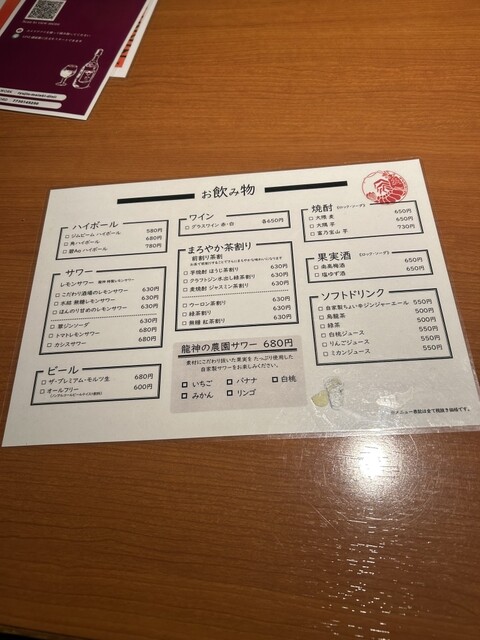 お飲み物
ハイボール
□ ジムビーム ハイボール 580円
□ 角ハイボール 680円
□ 碧Ao ハイボール 780円
サワー
レモンサワー
□ こだわり酒場のレモンサワー 630円
□ 氷結 無糖レモンサワー 630円
□ ほんのり甘めのレモンサワー 630円
□ 翠ジンソーダ 630円
□ トマトレモンサワー 680円
□ カシスサワー 680円
ビール
□ ザ・プレミアム・モルツ生 680円
□ オールフリー 600円
(ノンアルコールビールテイスト飲料)
ワイン
□ グラスワイン 赤・白 各650円
まろやか茶割り
前割り茶割
□ 芋焼酎 ほうじ茶割り 630円
□ クラフトジン水出し緑茶割り 630円
□ 麦焼酎 ジャスミン茶割り 630円
□ ウーロン茶割り 630円
□ 緑茶割り 630円
□ 無糖 紅茶割り 680円
龍神の農園サワー 680円
素材にこだわり抜いた果実を たっぷり使用した
自家製サワーをお楽しみください。
□ いちご □ バナナ □ 白桃
□ みかん □ リンゴ
焼酎 (ロック・ソーダ)
□ 大隅 麦 650円
□ 大隅 芋 650円
□ 富乃宝山 芋 730円
果実酒 (ロック・ソーダ)
□ 南高梅酒 650円
□ 塩ゆず酒 650円
ソフトドリンク
□ 自家製ちょい辛ジンジャーエール 550円
□ 烏龍茶 500円
□ 緑茶 500円
□ 白桃ジュース 550円
□ りんごジュース 550円
□ ミカンジュース 550円
※メニュー表記は全て税抜き価格です。